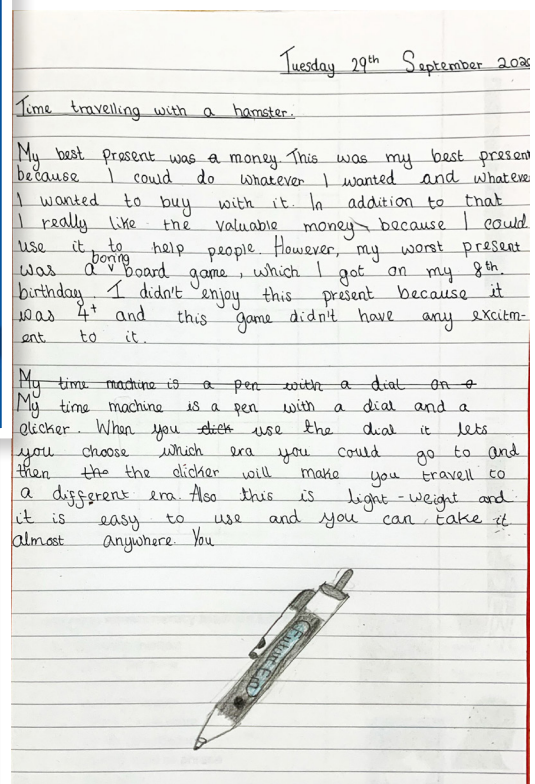 Tuesday 29th September 2020
Time travelling with a hamster.
My best present was a money. This was my best present
because I could do whatever I wanted and whateve
I wanted to buy with it. In addition to that
I really like the valuable money because I could
use it to help people. However, my worst present
was a boring board game, which I got on my 8th
birthday. I didn't enjoy this present because it
was 4+ and this game didn't have any excitm-
ent to it.
My time machine is a pen with a dial on a
My time machine is a pen with a dial and a
clicker. When you click use the dial it lets
you choose which era you could go to and
then the the clicker will make you travell to
a different era. Also this is light-weight and
it is easy to use and you can take it
almost anywhere. You